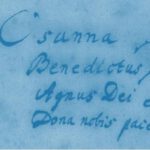 Osanna
Benedictus
Agnus Dei
Dona nobis pace